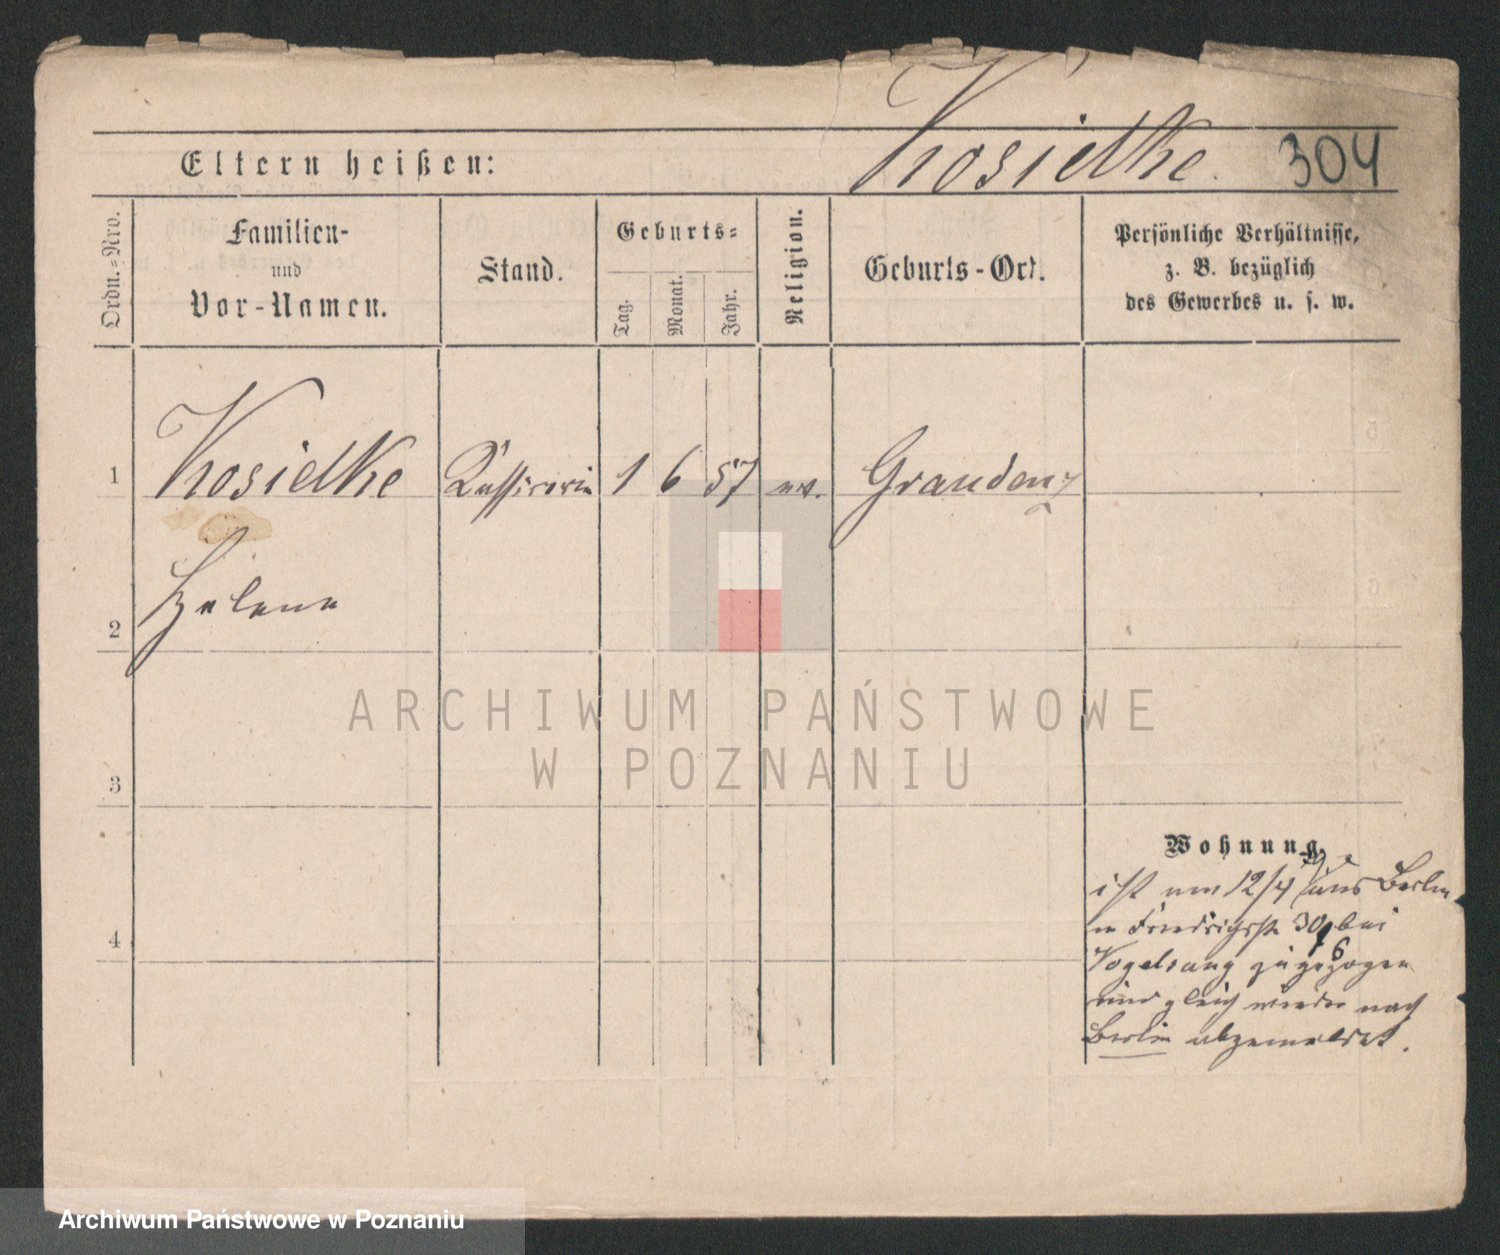 Kosidtke. 304
Eltern heißen:
Ordn.=Nro.
Familien-
und
Vor-Namen.
Stand.
Geburts=
Tag.
Monat.
Jahr.
Religion.
Geburts-Ort.
Persönliche Verhältnisse,
z. B. bezüglich
des Gewerbes u. s. w.
1 Kosidtke Kassirerin 1 6 57 ev. Graudenz
Helene
2
3
4
ARCHIWUM PAŃSTWOWE
W POZNANIU
Wohnung.
ist am 12/4 aus Berlin
n Friedrichsstr 30 bei
6
Vogelsang zugezogen
und gleich wieder nach
Berlin abgemeldet.
Archiwum Państwowe w Poznaniu